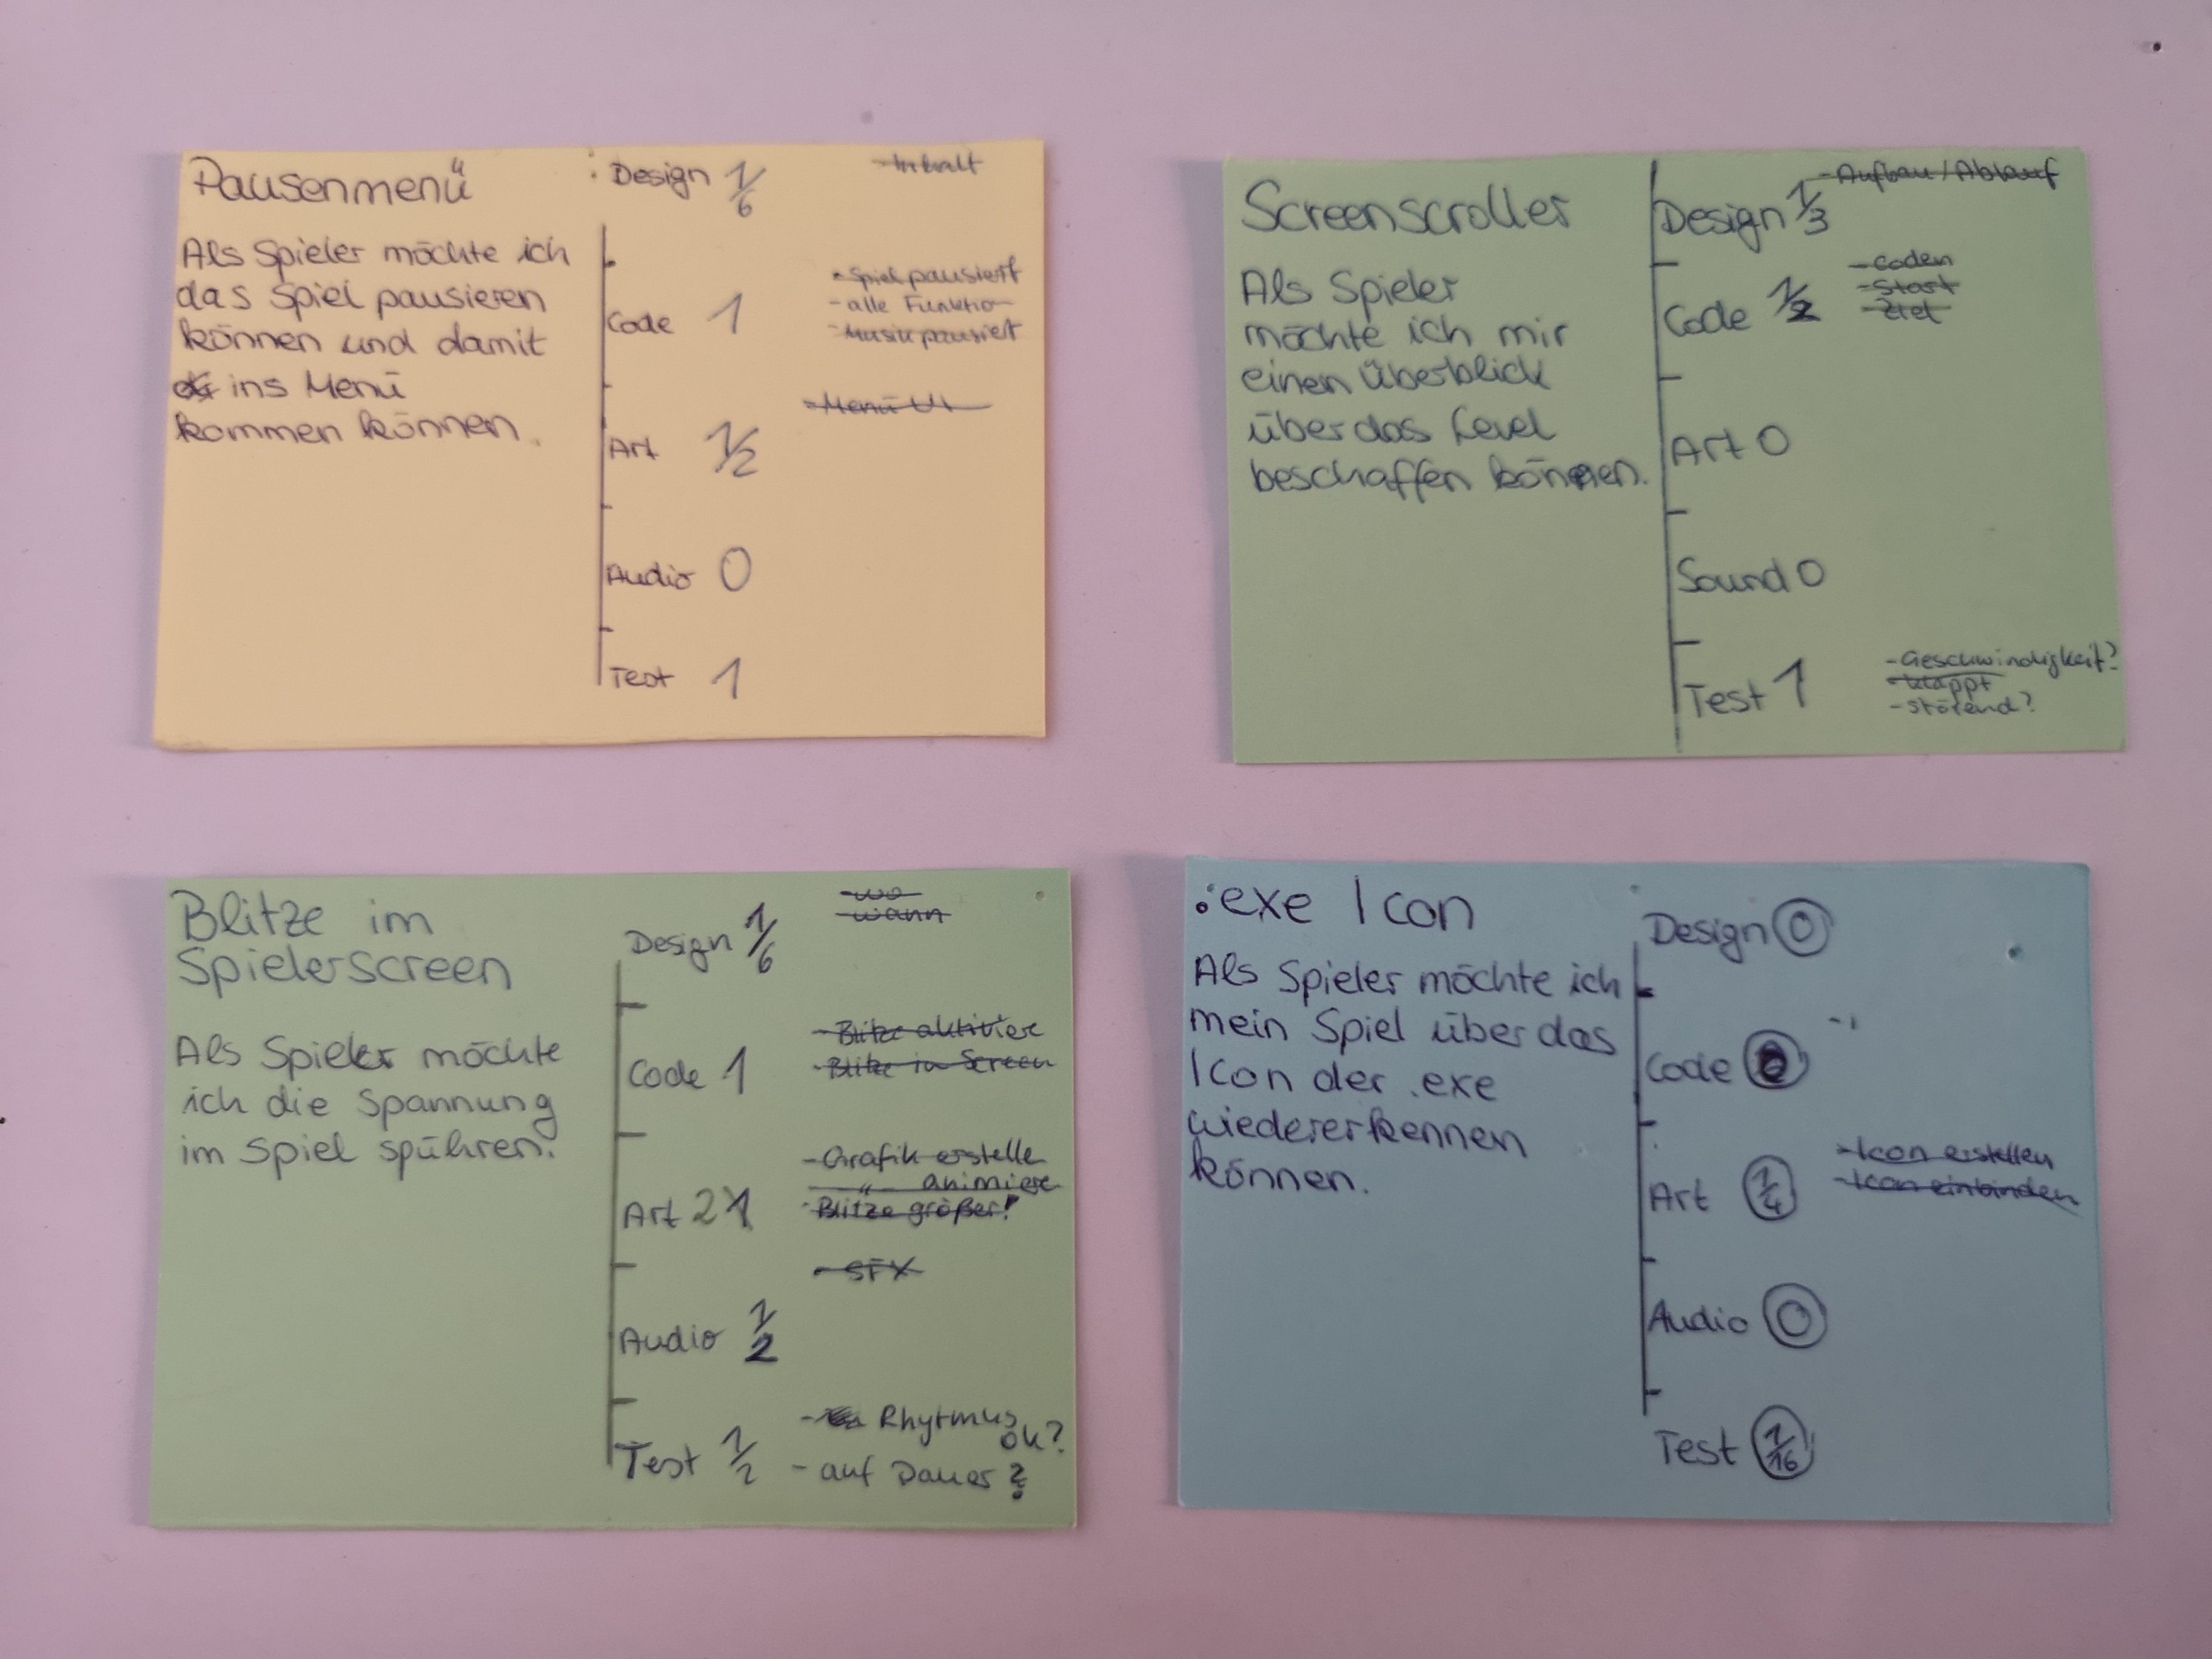 Pausenmenü
Als Spieler möchte ich
das Spiel pausieren
können und damit
ins Menü
kommen können.
Design 1/6
- Inhalt
Code 1
- Spiel pausiert
- alle Funktio
- Musik pausiert
Art 1/2
- Menü UI
Audio 0
Test 1
Screenscroller
Als Spieler
möchte ich mir
einen Überblick
über das Level
beschaffen können.
Design 1/3
- Aufbau / Ablauf
Code 1/2
- Coden
- Start
- Ziel
Art 0
Sound 0
Test 1
- Geschwindigkeit?
- klappt
- störend?
Blitze im
Spielerscreen
Als Spieler möchte
ich die Spannung
im Spiel spühren.
Design 1/6
- wo
- wann
Code 1
- Blitze aktiviere
- Blitze in Screen
Art 2 1
- Grafik erstelle
- " animiere
- Blitze größer!
Audio 1/2
- SFX
Test 1/2
- Rhytmus
ok?
- auf Dauer?
.exe Icon
Als Spieler möchte ich
mein Spiel über das
Icon der .exe
wiedererkennen
können.
Design 0
Code
Art 1/4
- Icon erstellen
- Icon einbinden
Audio 0
Test 1/16